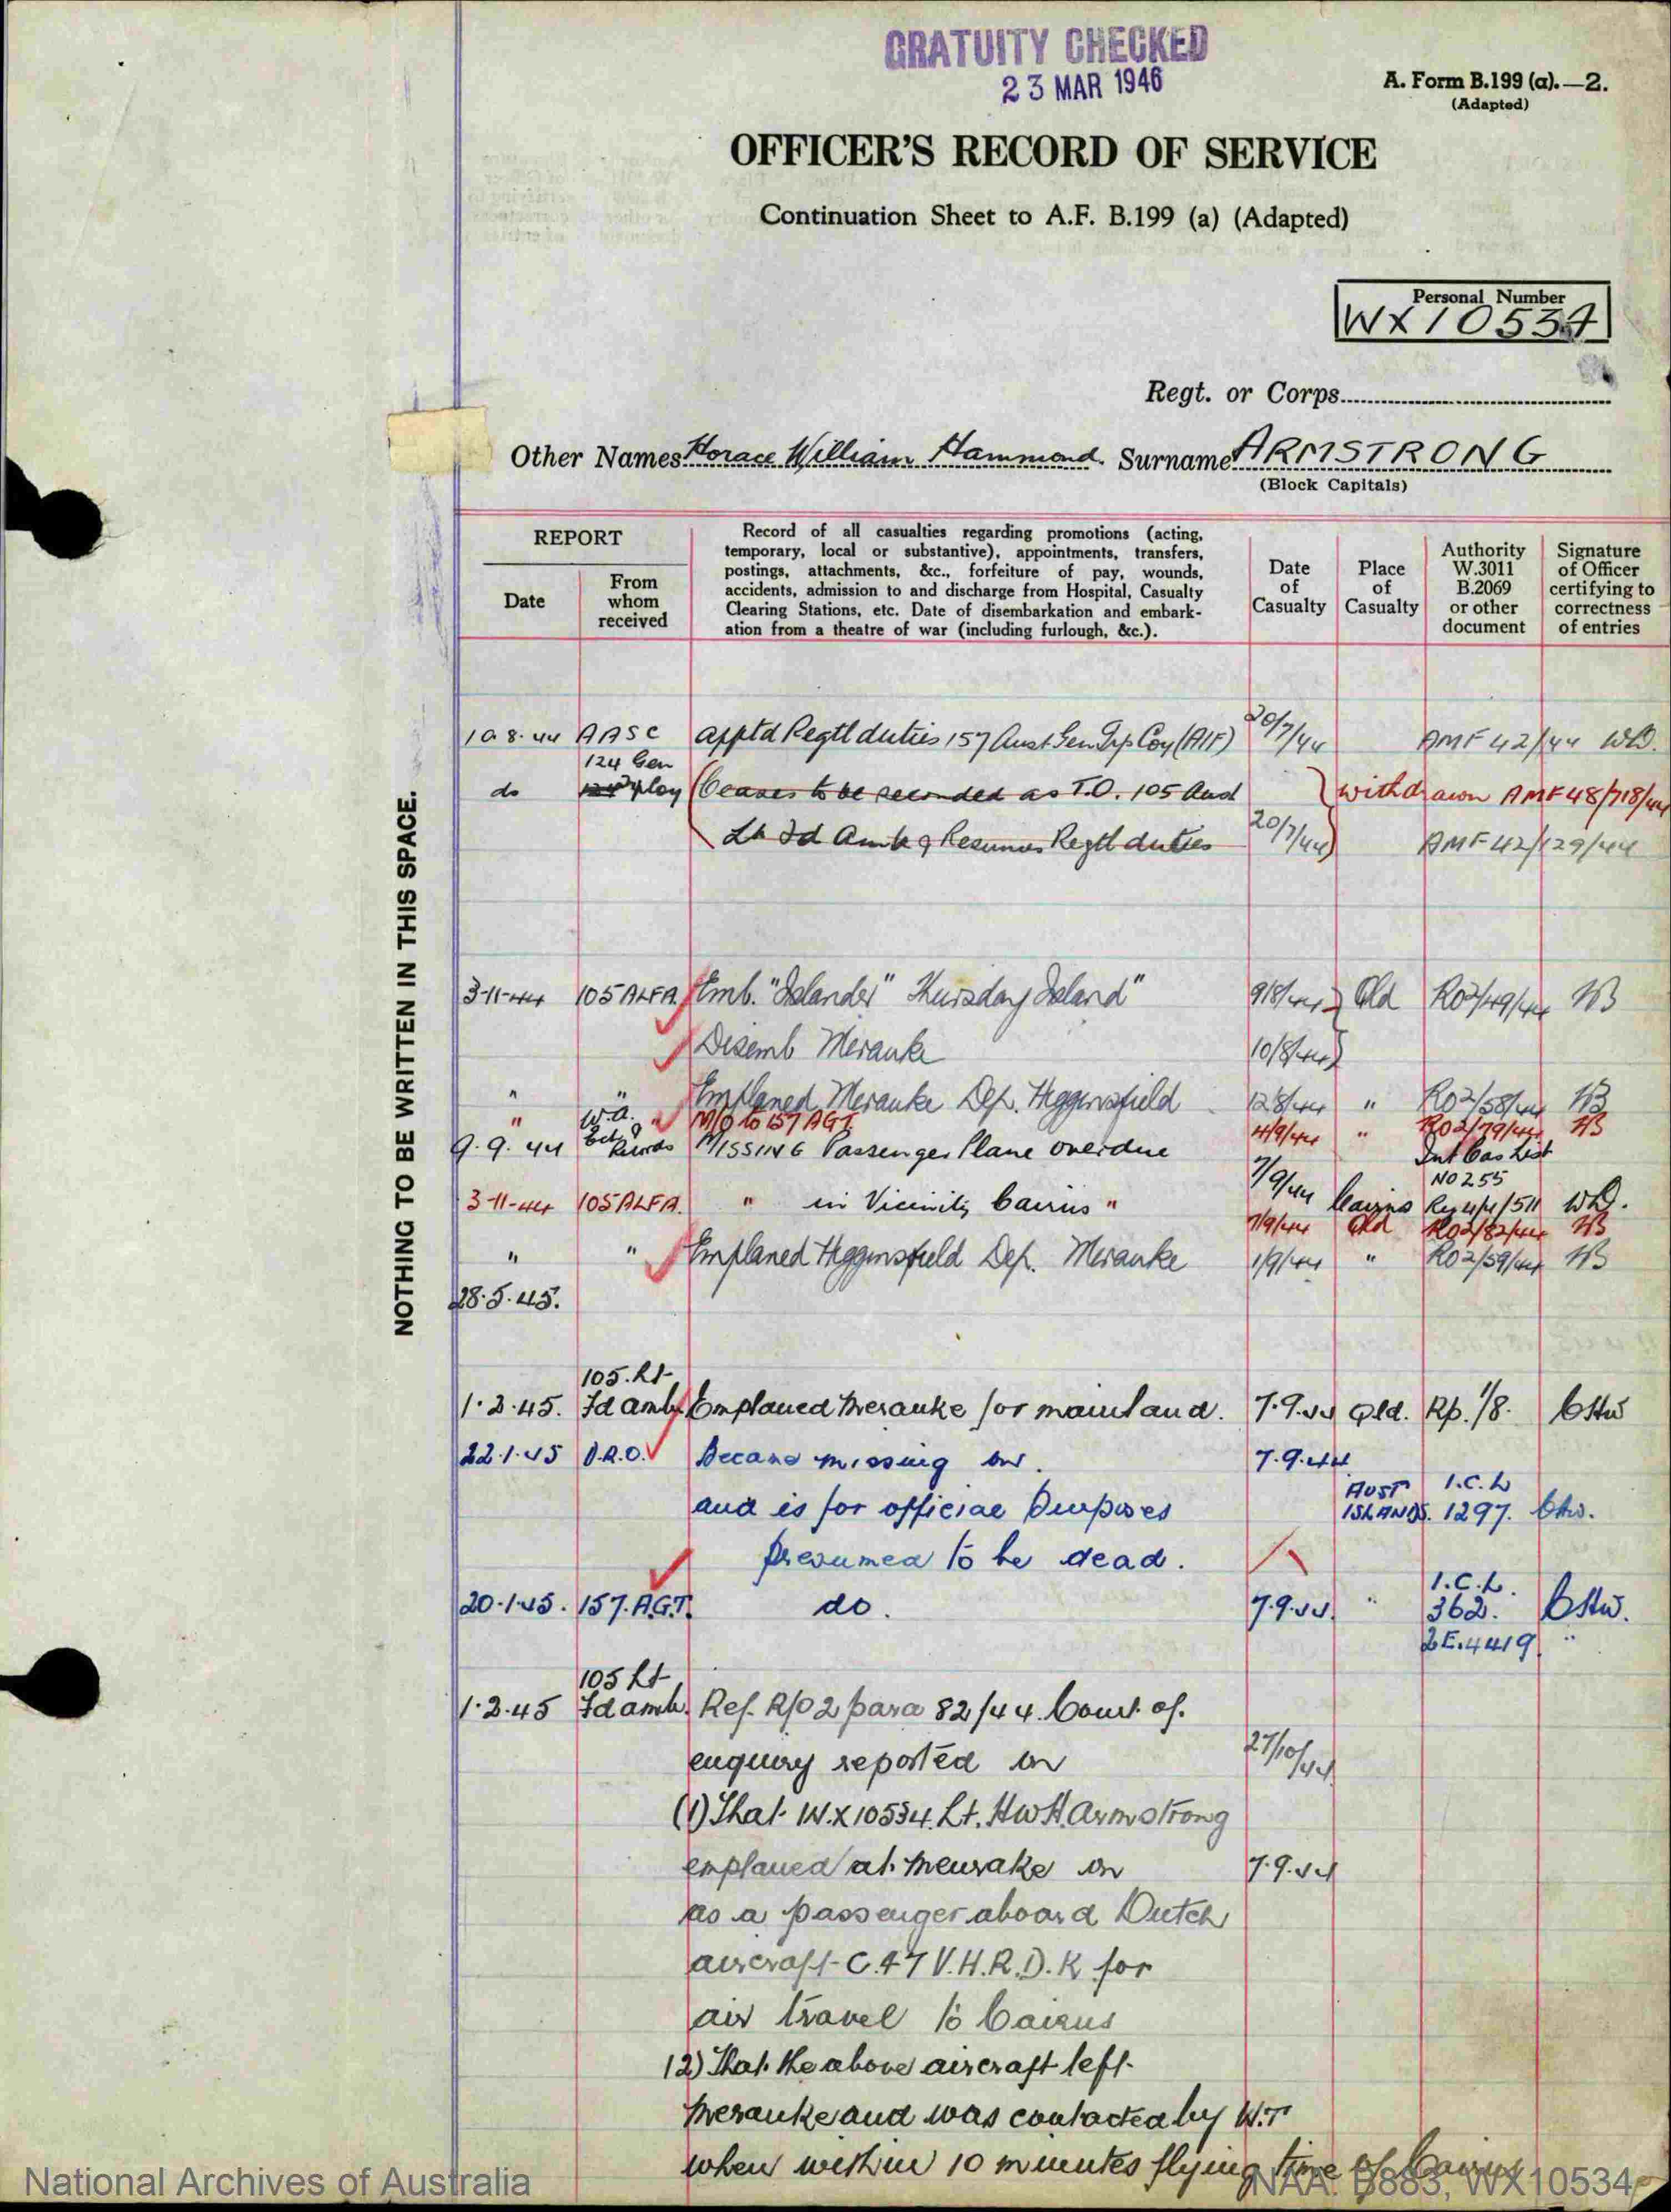 GRATUITY CHECKED
23 MAR 1946
A. Form B.199 (a).—2.
(Adapted)
OFFICER'S RECORD OF SERVICE
Continuation Sheet to A.F. B.199 (a) (Adapted)
Personal Number
WX10534
Regt. or Corps
Other Names Horace William Hammond. Surname ARMSTRONG
(Block Capitals)
NOTHING TO BE WRITTEN IN THIS SPACE.
REPORT
Date
From whom received
Record of all casualties regarding promotions (acting,
temporary, local or substantive), appointments, transfers,
postings, attachments, &c., forfeiture of pay, wounds,
accidents, admission to and discharge from Hospital, Casualty
Clearing Stations, etc. Date of disembarkation and embark-
ation from a theatre of war (including furlough, &c.).
Date of Casualty
Place of Casualty
Authority W.3011 B.2069 or other document
Signature of Officer certifying to correctness of entries
10.8.44 AASC apptd Regtl duties 157 Aust Gen Tpt Coy (AIF) 20/7/44 AMF 42/44 WD.
124 Gen
do (Ceases to be seconded as T.O. 105 Aust } withdrawn AMF 48/718/44
Lt Fd Amb & Resumes Regtl duties 20/7/44) AMF 42/129/44
3-11-44 105 ALFA. Emb. "Islander" Thursday Island" 9/8/44 } Qld RO2/49/44 HB
Disemb Merauke 10/8/44 }
" " Emplaned Merauke Dep. Higginsfield 12/8/44 " RO2/58/44 HB
" " M/O to 157 AGT 4/9/44 " RO2/79/44 HB
9.9.44 W.A. Ech & Records MISSING Passenger Plane overdue 7/9/44 Int Cas List
No 255
3-11-44 105 ALFA. " in Vicinity Cairns " Cairns Rg 4/1/511 WD.
7/9/44 Qld RO2/82/44 HB
" " Emplaned Higginsfield Dep. Merauke 1/9/44 " RO2/59/44 HB
28.5.45.
105. Lt
1.2.45. Fd amb. Emplaned Merauke for mainland. 7.9.44 Qld. Rp. 1/8.
22.1.45 D.R.O. Became missing on. 7.9.44
and is for official purposes AUST ISLANDS. I.C.L 1297.
presumed to be dead.
20.1.45. 157. A.G.T. do. 7.9.44. " I.C.L. 362.
2E.4419. "
105 Lt
1.2.45 Fd amb. Ref. R/O 2 para 82/44. Court of.
enquiry reported on 27/10/44
(1) That WX10534. Lt. HWH. Armstrong
emplaned at Meurake on 7.9.44
as a passenger aboard Dutch
aircraft C.47 V.H.R.D.K for
air travel to Cairns
(2) That the above aircraft left
Merauke and was contacted by W.T
when within 10 minutes flying time of Cairns
National Archives of Australia
NAA: B883, WX10534